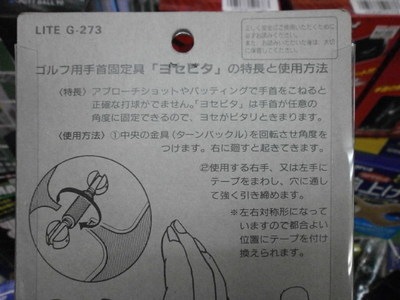 LITE G-273
正しく安全にご使用いただくために
必ずお読みください。
ゴルフ用手首固定具「ヨセピタ」の特長と使用方法
〈特長〉アプローチショットやパッティングで手首をこねると
正確な打球がでません。「ヨセピタ」は手首が任意の
角度に固定できるので、ヨセがピタリときまります。
〈使用方法〉①中央の金具(ターンバックル)を回転させ角度を
つけます。右に廻すと起きてきます。
②使用する右手、又は左手に
テープをまわし、穴に通し
て強く引き締めます。
※左右対称形になって
いますので都合よい
位置にテープを付け
換えられます。